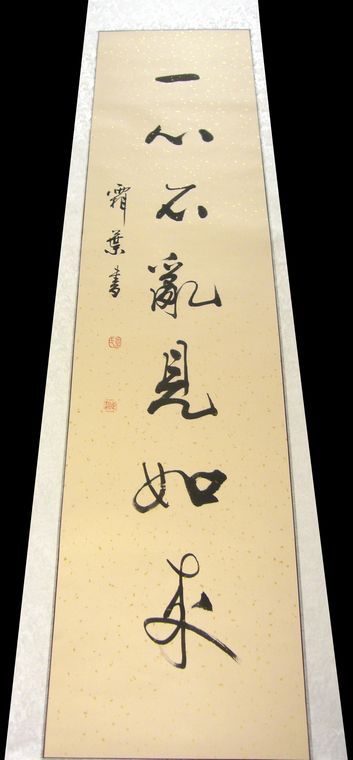 一心不亂見如来
霜葉書